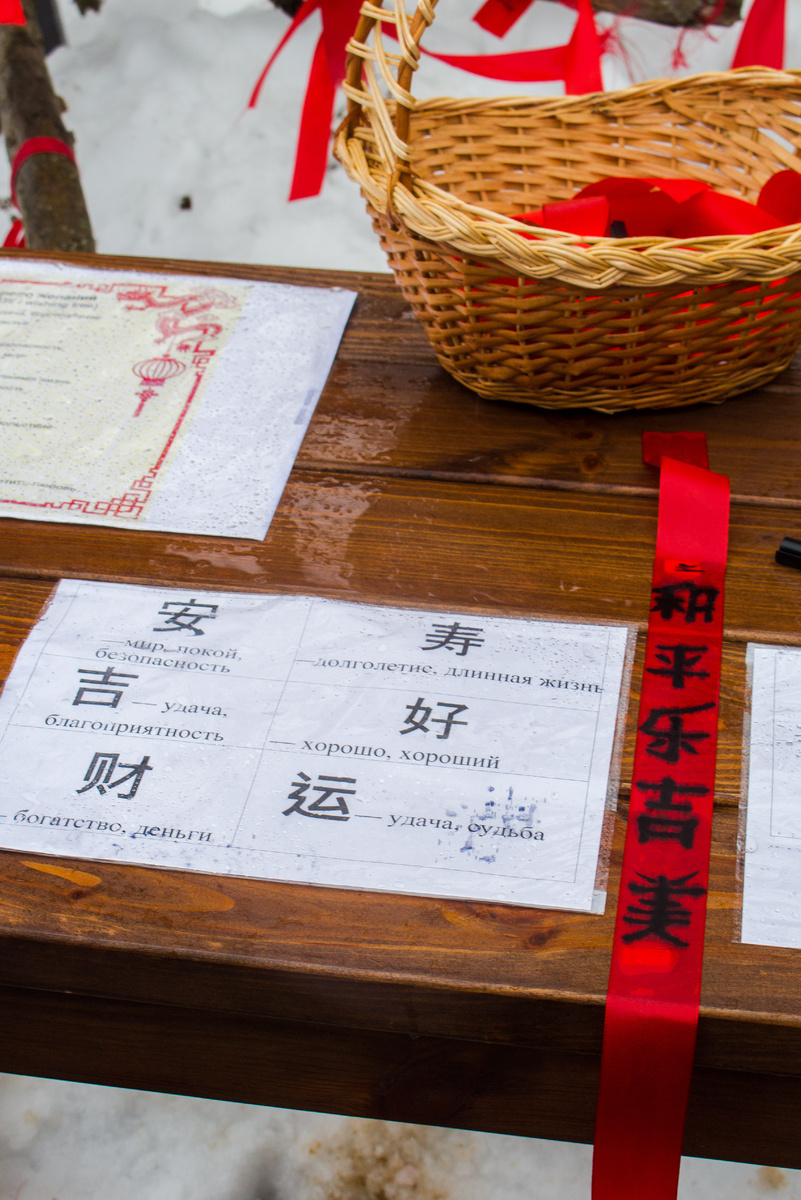 安
—мир, покой,
безопасность
寿
—долголетие, длинная жизнь
吉 — удача,
благоприятность
好
— хорошо, хороший
财
— богатство, деньги
运 — удача, судьба
和
平
乐
吉
美